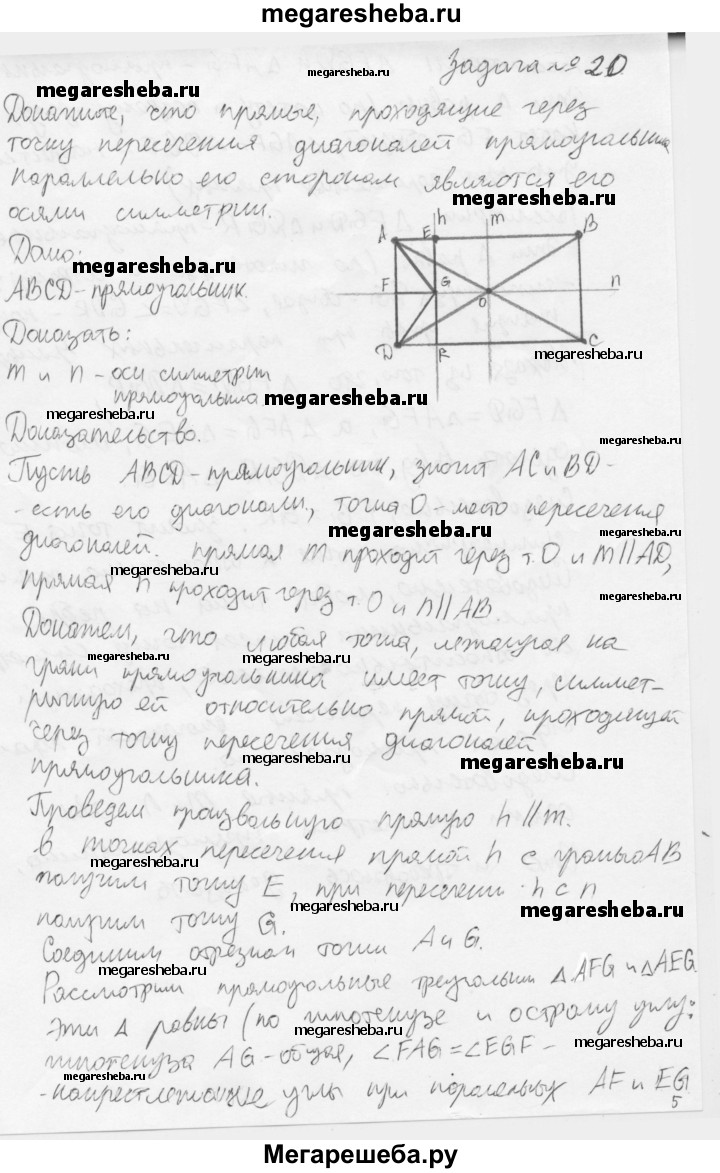 megaresheba.ru
Задача № 20
megaresheba.ru
megaresheba.ru
Докажите, что прямые, проходящие через
точку пересечения диагоналей прямоугольника
параллельно его сторонам являются его
megaresheba.ru
осями симметрии.
Дано:
megaresheba.ru
ABCD - прямоугольник.
Доказать:
m и n - оси симметрии
прямоугольника
A E h m B
F G O n
D R C
megaresheba.ru
megaresheba.ru
megaresheba.ru
Доказательство.
megaresheba.ru
Пусть ABCD - прямоугольник, значит AC и BD -
- есть его диагонали, точка O - место пересечения
megaresheba.ru
megaresheba.ru
диагоналей. прямая m проходит через т. O и m || AD,
megaresheba.ru
прямая n проходит через т. O и n || AB.
megaresheba.ru
Докажем, что любая точка, лежащая на
megaresheba.ru
megaresheba.ru
грани прямоугольника имеет точку, симмет-
рычную ей относительно прямой, проходящей
megaresheba.ru
через точку пересечения диагоналей
megaresheba.ru
megaresheba.ru
прямоугольника.
Проведем произвольную прямую h || m.
В точках пересечения прямой h с гранью AB
megaresheba.ru
получим точку E, при пересечении h с n
megaresheba.ru
получим точку G.
Соединим отрезком точки A и G.
megaresheba.ru
Рассмотрим прямоугольные треугольн ΔAFG и ΔAEG.
Эти Δ равны (по гипотенузе и острому углу:
megaresheba.ru
гипотенуза AG - общая, ∠FAG = ∠EGF -
megaresheba.ru
megaresheba.ru
- накрестлежащие углы при паралельных AF и EG
5
Мегарешеба.ру